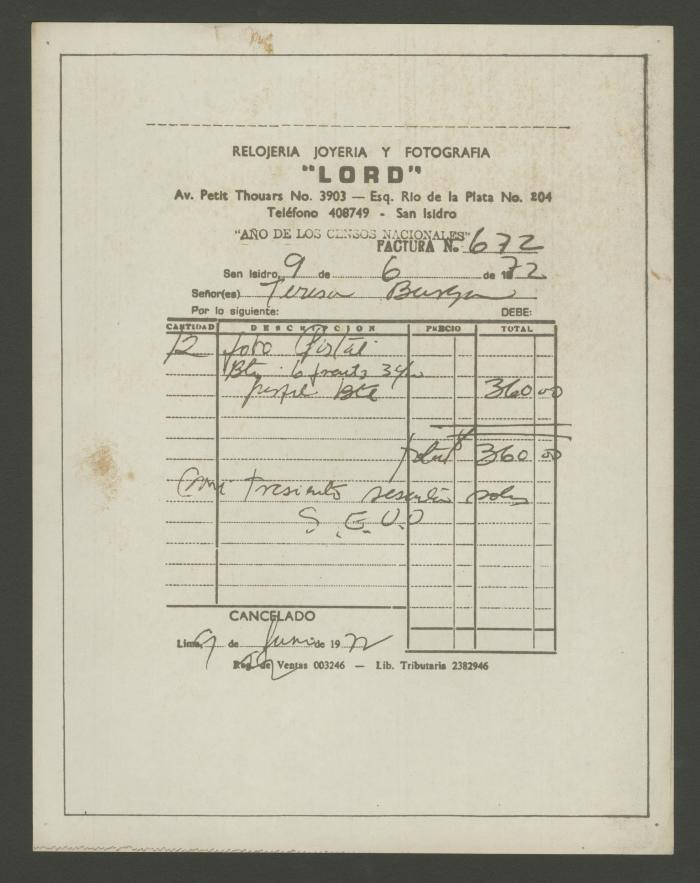 RELOJERIA JOYERIA Y FOTOGRAFIA
"LORD"
Av. Petit Thouars No. 3903 — Esq. Rio de la Plata No. 204
Teléfono 408749 - San Isidro
"AÑO DE LOS CENSOS NACIONALES"
FACTURA N. 672
San Isidro, 9 de 6 de 1972
Señor(es) Teresa
Por lo siguiente: DEBE:
CANTIDAD DESCRIPCION PRECIO TOTAL
12 foto
6 3/4
perfil 360 00
total 360 00
Son: tresiento sesenta soles
S.E.U.O
CANCELADO
Lima, 9 de Junio de 1972
Reg. de Ventas 003246 — Lib. Tributaria 2382946